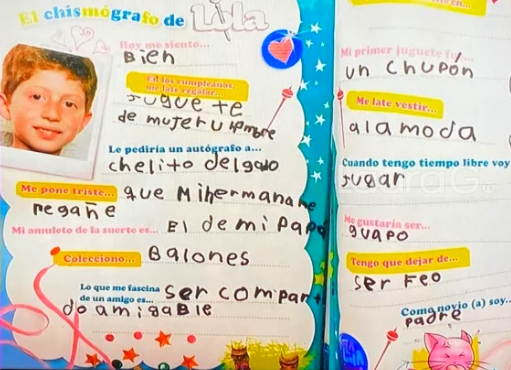 El chismógrafo de Lula
Hoy me siento...
Bien
En los cumpleaños,
me late regalar...
Juguete
de mujer u Hombre
Le pediría un autógrafo a...
chelito delgado
Me pone triste...
que Mi hermana me
regañe
Mi amuleto de la suerte es...
El de mi Papá
Colecciono...
Balones
Lo que me fascina
de un amigo es...
ser compar
do amigable
Mi primer juguete fue...
un chupón
Me late vestir...
a la moda
Cuando tengo tiempo libre voy
jugar
Me gustaría ser...
guapo
Tengo que dejar de...
ser Feo
Como novio (a) soy..
padre